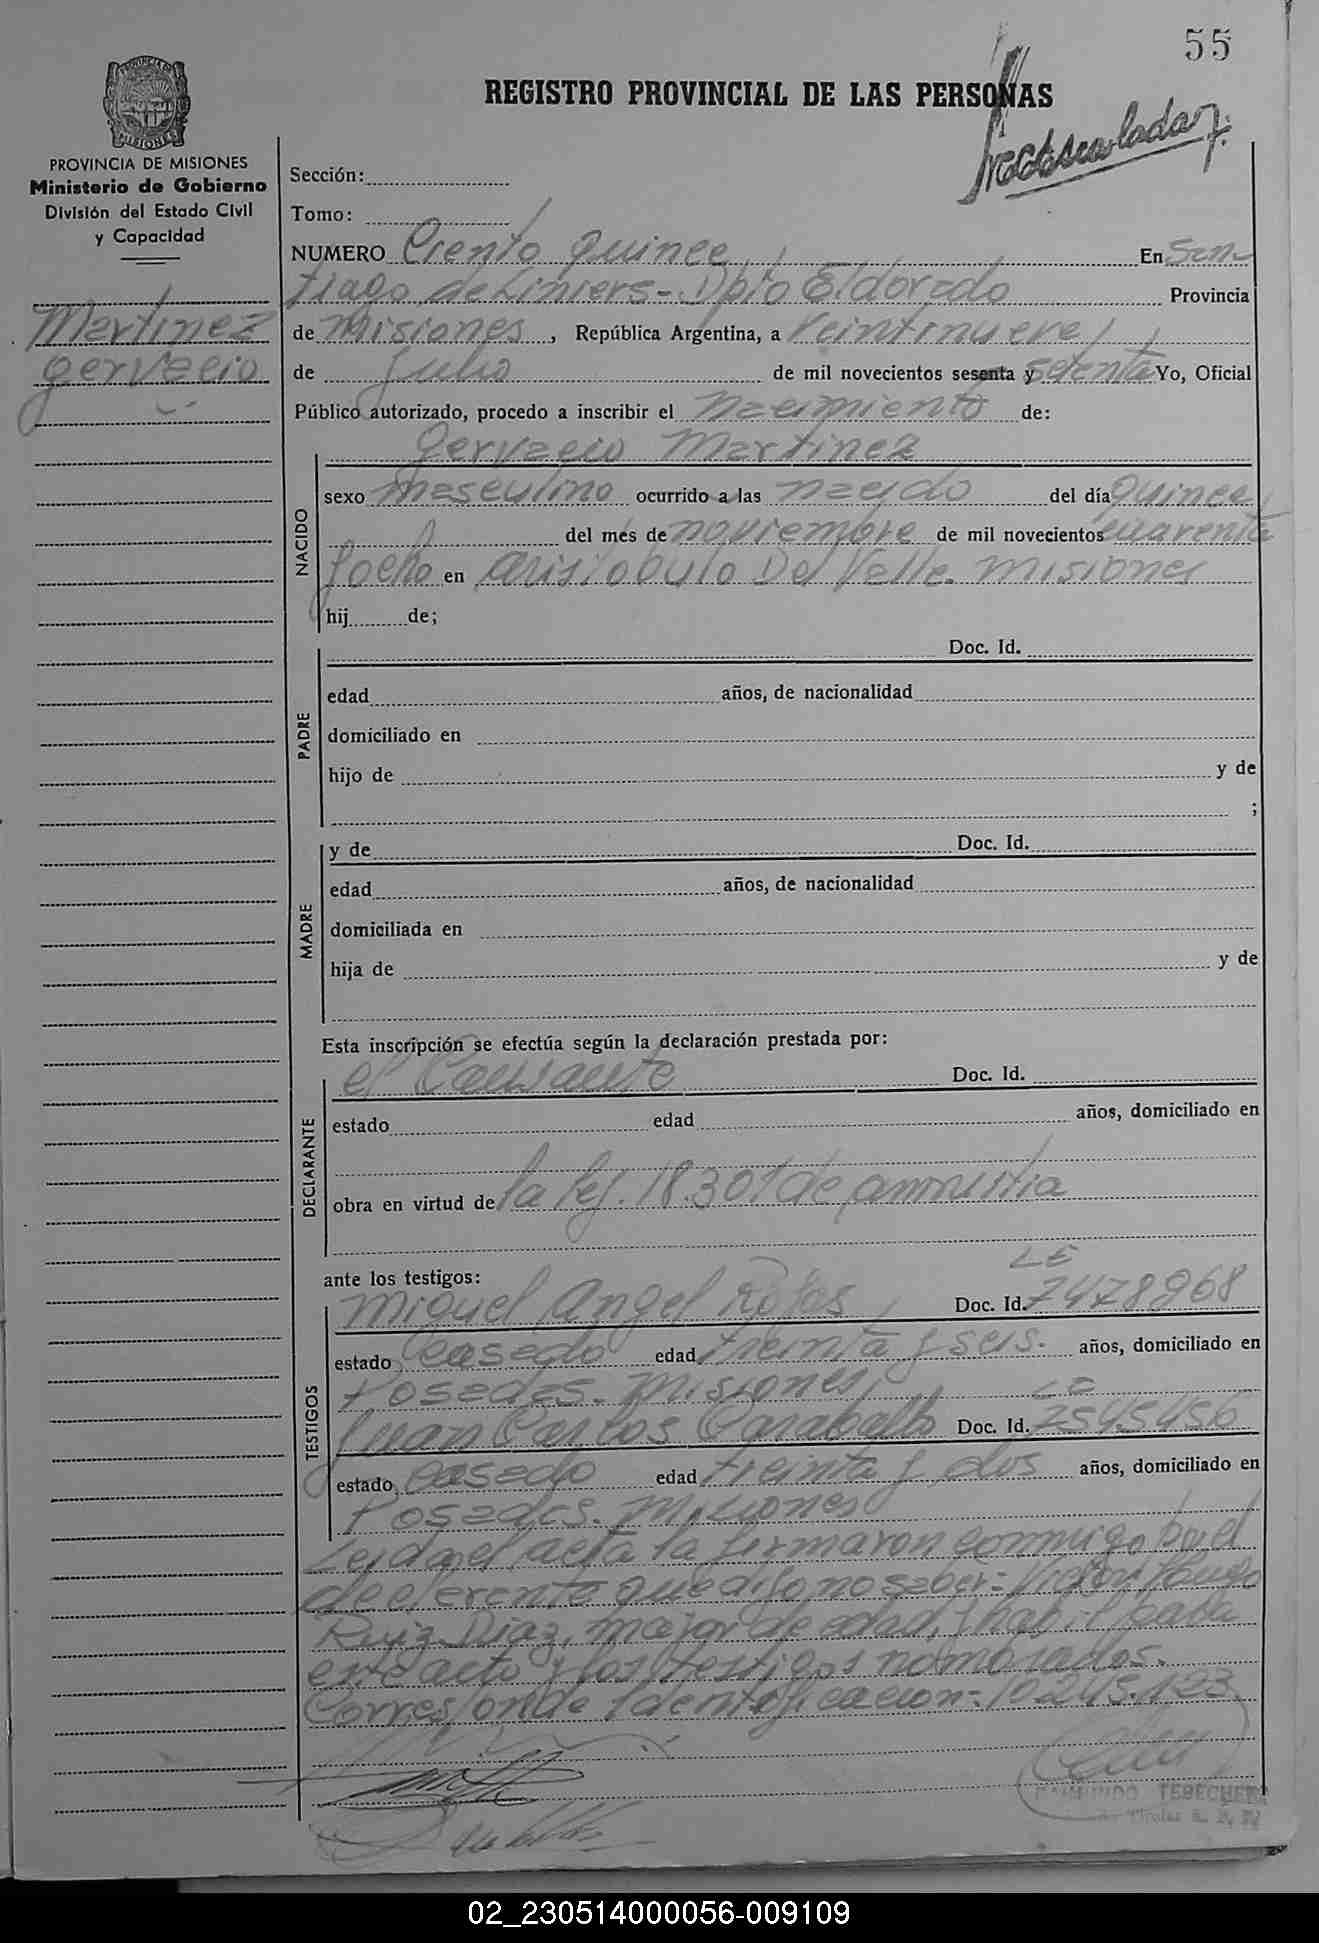 55
REGISTRO PROVINCIAL DE LAS PERSONAS
PROVINCIA DE MISIONES
Ministerio de Gobierno
División del Estado Civil
y Capacidad
Martinez
Gervacio
Sección:
Tomo:
NUMERO Ciento quince En San
tiago de Liniers - Dpto Eldorado Provincia
de Misiones, República Argentina, a veintinueve
de Julio de mil novecientos sesenta y setenta Yo, Oficial
Público autorizado, procedo a inscribir el nacimiento de:
NACIDO
Gervacio Martinez
sexo masculino ocurrido a las nacido del día quince
del més de noviembre de mil novecientos cuarenta
y ocho en Aristobulo Del Valle. Misiones
hij de;
PADRE
Doc. Id.
edad años, de nacionalidad
domiciliado en
hijo de y de
;
MADRE
y de Doc. Id.
edad años, de nacionalidad
domiciliada en
hija de y de
Esta inscripción se efectúa según la declaración prestada por:
DECLARANTE
el Causante Doc. Id.
estado edad años, domiciliado en
obra en virtud de la ley. 18.301 de amnistia
ante los testigos:
TESTIGOS
LE
Miguel Angel Doc. Id. 7478968
estado casado edad treinta y seis. años, domiciliado en
Posadas. Misiones
LE
Juan Carlos Doc. Id. 7545456
estado casado edad treinta y dos años, domiciliado en
Posadas. Misiones
Leida el acta la firmaron conmigo por el
que dijo no saber: Victor Hugo
Ruiz Diaz, mayor de edad, habil para
este acto y los testigos nombrados.
Corresponde Identificacion:
RAIMUNDO
02_230514000056-009109